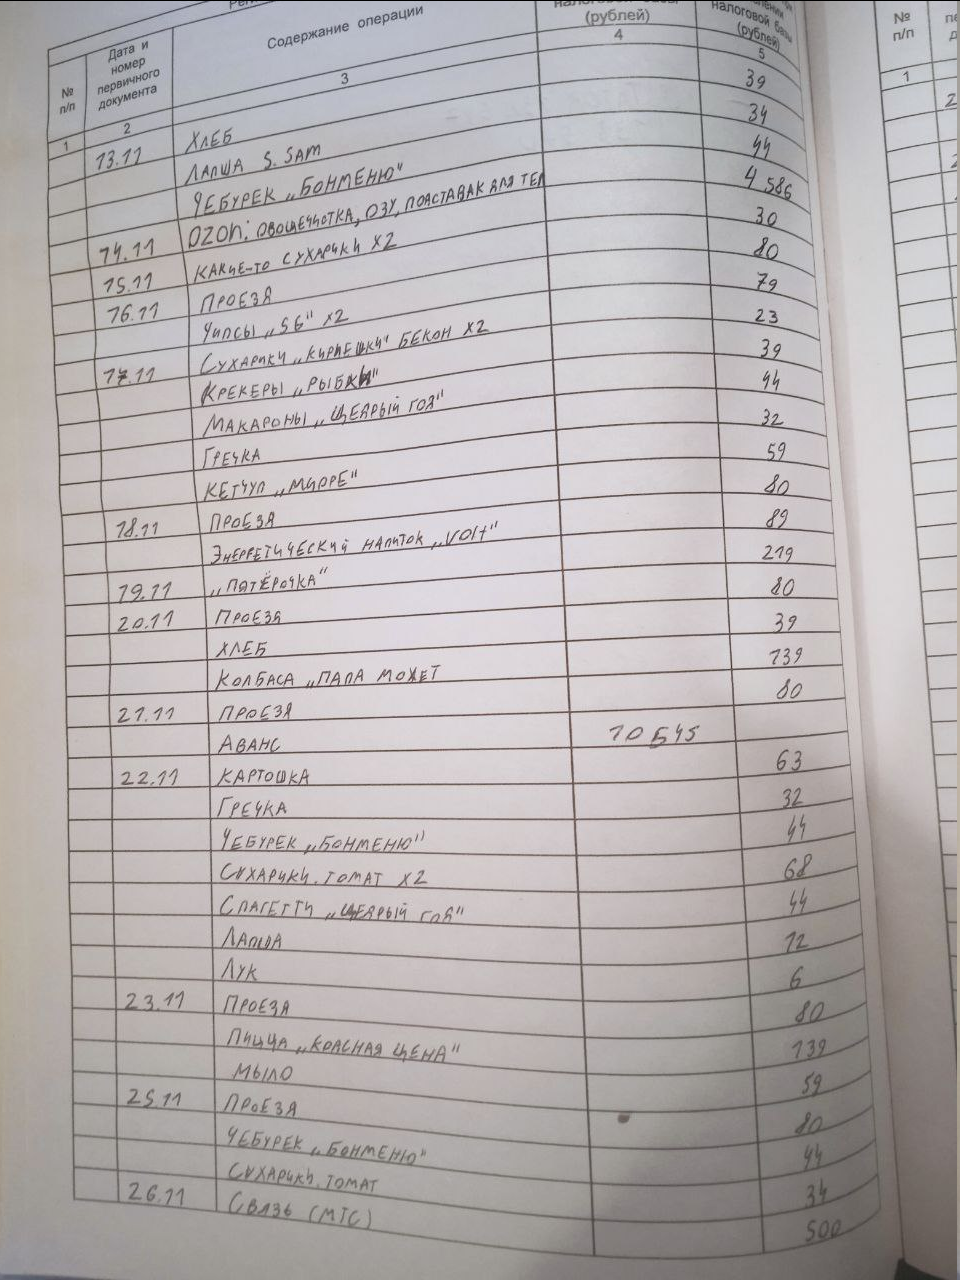 Содержание операции
налоговой базы (рублей)
налоговой базы (рублей)
№ п/п
Дата и номер первичного документа
№ п/п
1 2 3 4 5
1
13.11 ХЛЕБ 39
ЛАПША S. SAM 34
ЧЕБУРЕК „БОНМЕНЮ" 44
14.11 OZON: ОВОЩЕЧИСТКА, ОЗУ, ПОДСТАВАК ДЛЯ ТЕЛ 4 586
15.11 КАКИЕ-ТО СУХАРИКИ X2 30
16.11 ПРОЕЗД 80
ЧИПСЫ „56" X2 79
17.11 СУХАРИКИ „КИРИЕШКИ" БЕКОН X2 23
КРЕКЕРЫ „РЫБКИ" 39
МАКАРОНЫ „ЩЕДРЫЙ ГОД" 44
ГРЕЧКА 32
КЕТЧУП „МИОРЕ" 59
18.11 ПРОЕЗД 80
ЭНЕРГЕТИЧЕСКИЙ НАПИТОК „VOLT" 89
19.11 „ПЯТЁРОЧКА" 219
20.11 ПРОЕЗД 80
ХЛЕБ 39
КОЛБАСА „ПАПА МОЖЕТ 139
21.11 ПРОЕЗД 80
АВАНС 10 545
22.11 КАРТОШКА 63
ГРЕЧКА 32
ЧЕБУРЕК „БОНМЕНЮ" 44
СУХАРИКИ. ТОМАТ X2 68
СПАГЕТТИ „ЩЕДРЫЙ ГОД" 44
ЛАПША 12
ЛУК 6
23.11 ПРОЕЗД 80
ПИЦЦА „КРАСНАЯ ЦЕНА" 139
МЫЛО 59
25.11 ПРОЕЗД 80
ЧЕБУРЕК „БОНМЕНЮ" 44
СУХАРИКИ. ТОМАТ 34
26.11 СВЯЗЬ (МТС) 500